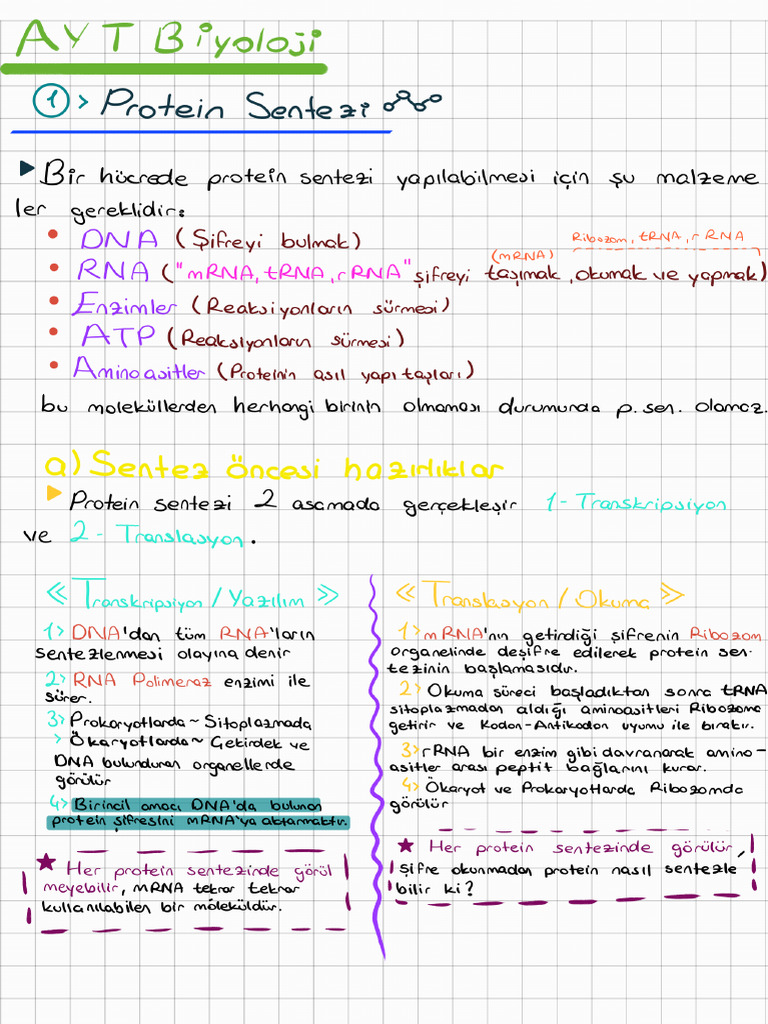 AYT Biyoloji
1> Protein Sentezi
Bir hücrede protein sentezi yapılabilmesi için şu malzeme
ler gereklidir:
• DNA (Şifreyi bulmak)
(mRNA) Ribozom, tRNA, rRNA
• RNA ("mRNA, tRNA, rRNA" şifreyi taşımak, okumak ve yapmak)
• Enzimler (Reaksiyonların sürmesi)
• ATP (Reaksiyonların sürmesi)
• Aminoasitler (Proteinin asıl yapı taşları)
bu moleküllerden herhangi birinin olmaması durumunda p. sen. olamaz.
a) Sentez öncesi hazırlıklar
Protein sentezi 2 asamada gerçekleşir 1- Transkripsiyon
ve 2 - Translasyon.
<< Transkripsiyon / Yazılım >>
1> DNA'dan tüm RNA'ların
sentezlenmesi olayına denir
2> RNA Polimeraz enzimi ile
sürer.
3> Prokaryotlarda ~ Sitoplazmada
> Ökaryotlarda ~ Çekirdek ve
DNA bulunduran organellerde
görülür
4> Birincil amacı DNA'da bulunan
protein şifresini mRNA'ya aktarmaktır.
★ Her protein sentezinde görül
meyebilir, mRNA tekrar tekrar
kullanılabilen bir moleküldür.
<< Translasyon / Okuma >>
1> mRNA'nın getirdiği şifrenin Ribozom
organelinde deşifre edilerek protein sen-
tezinin başlamasıdır.
2> Okuma süreci başladıktan sonra tRNA
sitoplazmadan aldığı aminoasitleri Ribozoma
getirir ve Kodon-Antikodon uyumu ile bırakır.
3> rRNA bir enzim gibi davranarak amino-
asitler arası peptit bağlarını kurar.
4> Ökaryot ve Prokaryotlarda Ribozomda
görülür
★ Her protein sentezinde görülür,
şifre okunmadan protein nasıl sentezle
bilir ki?